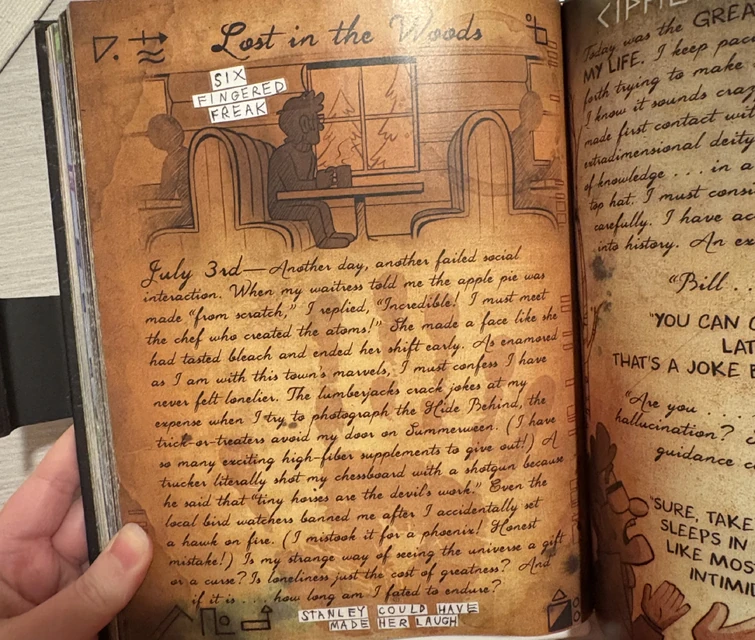 Lost in the Woods
SIX
FINGERED
FREAK
July 3rd—Another day, another failed social
interaction. When my waitress told me the apple pie was
made "from scratch," I replied, "Incredible! I must meet
the chef who created the atoms!" She made a face like she
had tasted bleach and ended her shift early. As enamored
as I am with this town's marvels, I must confess I have
never felt lonelier. The lumberjacks crack jokes at my
expense when I try to photograph the Hide Behind, the
trick-or-treaters avoid my door on Summerween. (I have
so many exciting high-fiber supplements to give out!) A
trucker literally shot my chessboard with a shotgun because
he said that "tiny horses are the devil's work." Even the
local bird watchers banned me after I accidentally set
a hawk on fire. (I mistook it for a phoenix! Honest
mistake!) Is my strange way of seeing the universe a gift
or a curse? Is loneliness just the cost of greatness? And
if it is . . . . how long am I fated to endure?
STANLEY COULD HAVE
MADE HER LAUGH
Today was the GREA
MY LIFE. I keep pac
forth trying to make
I know it sounds craz
made first contact wit
extradimensional deity
of knowledge . . . in a
top hat. I must consi
carefully. I have ac
into history. An ex
"Bill . .
"YOU CAN C
LAT
THAT'S A JOKE B
"Are you . . .
hallucination?
guidance c
"SURE, TAKE
SLEEPS IN
LIKE MOS
INTIMI